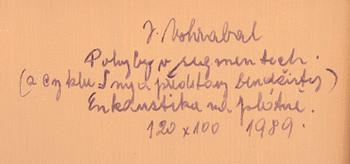 J. Vohrabal
Pohyby v segmentech.
(z cyklu Sny a představy
Enkaustika na plátně.
120 x 100 1989.